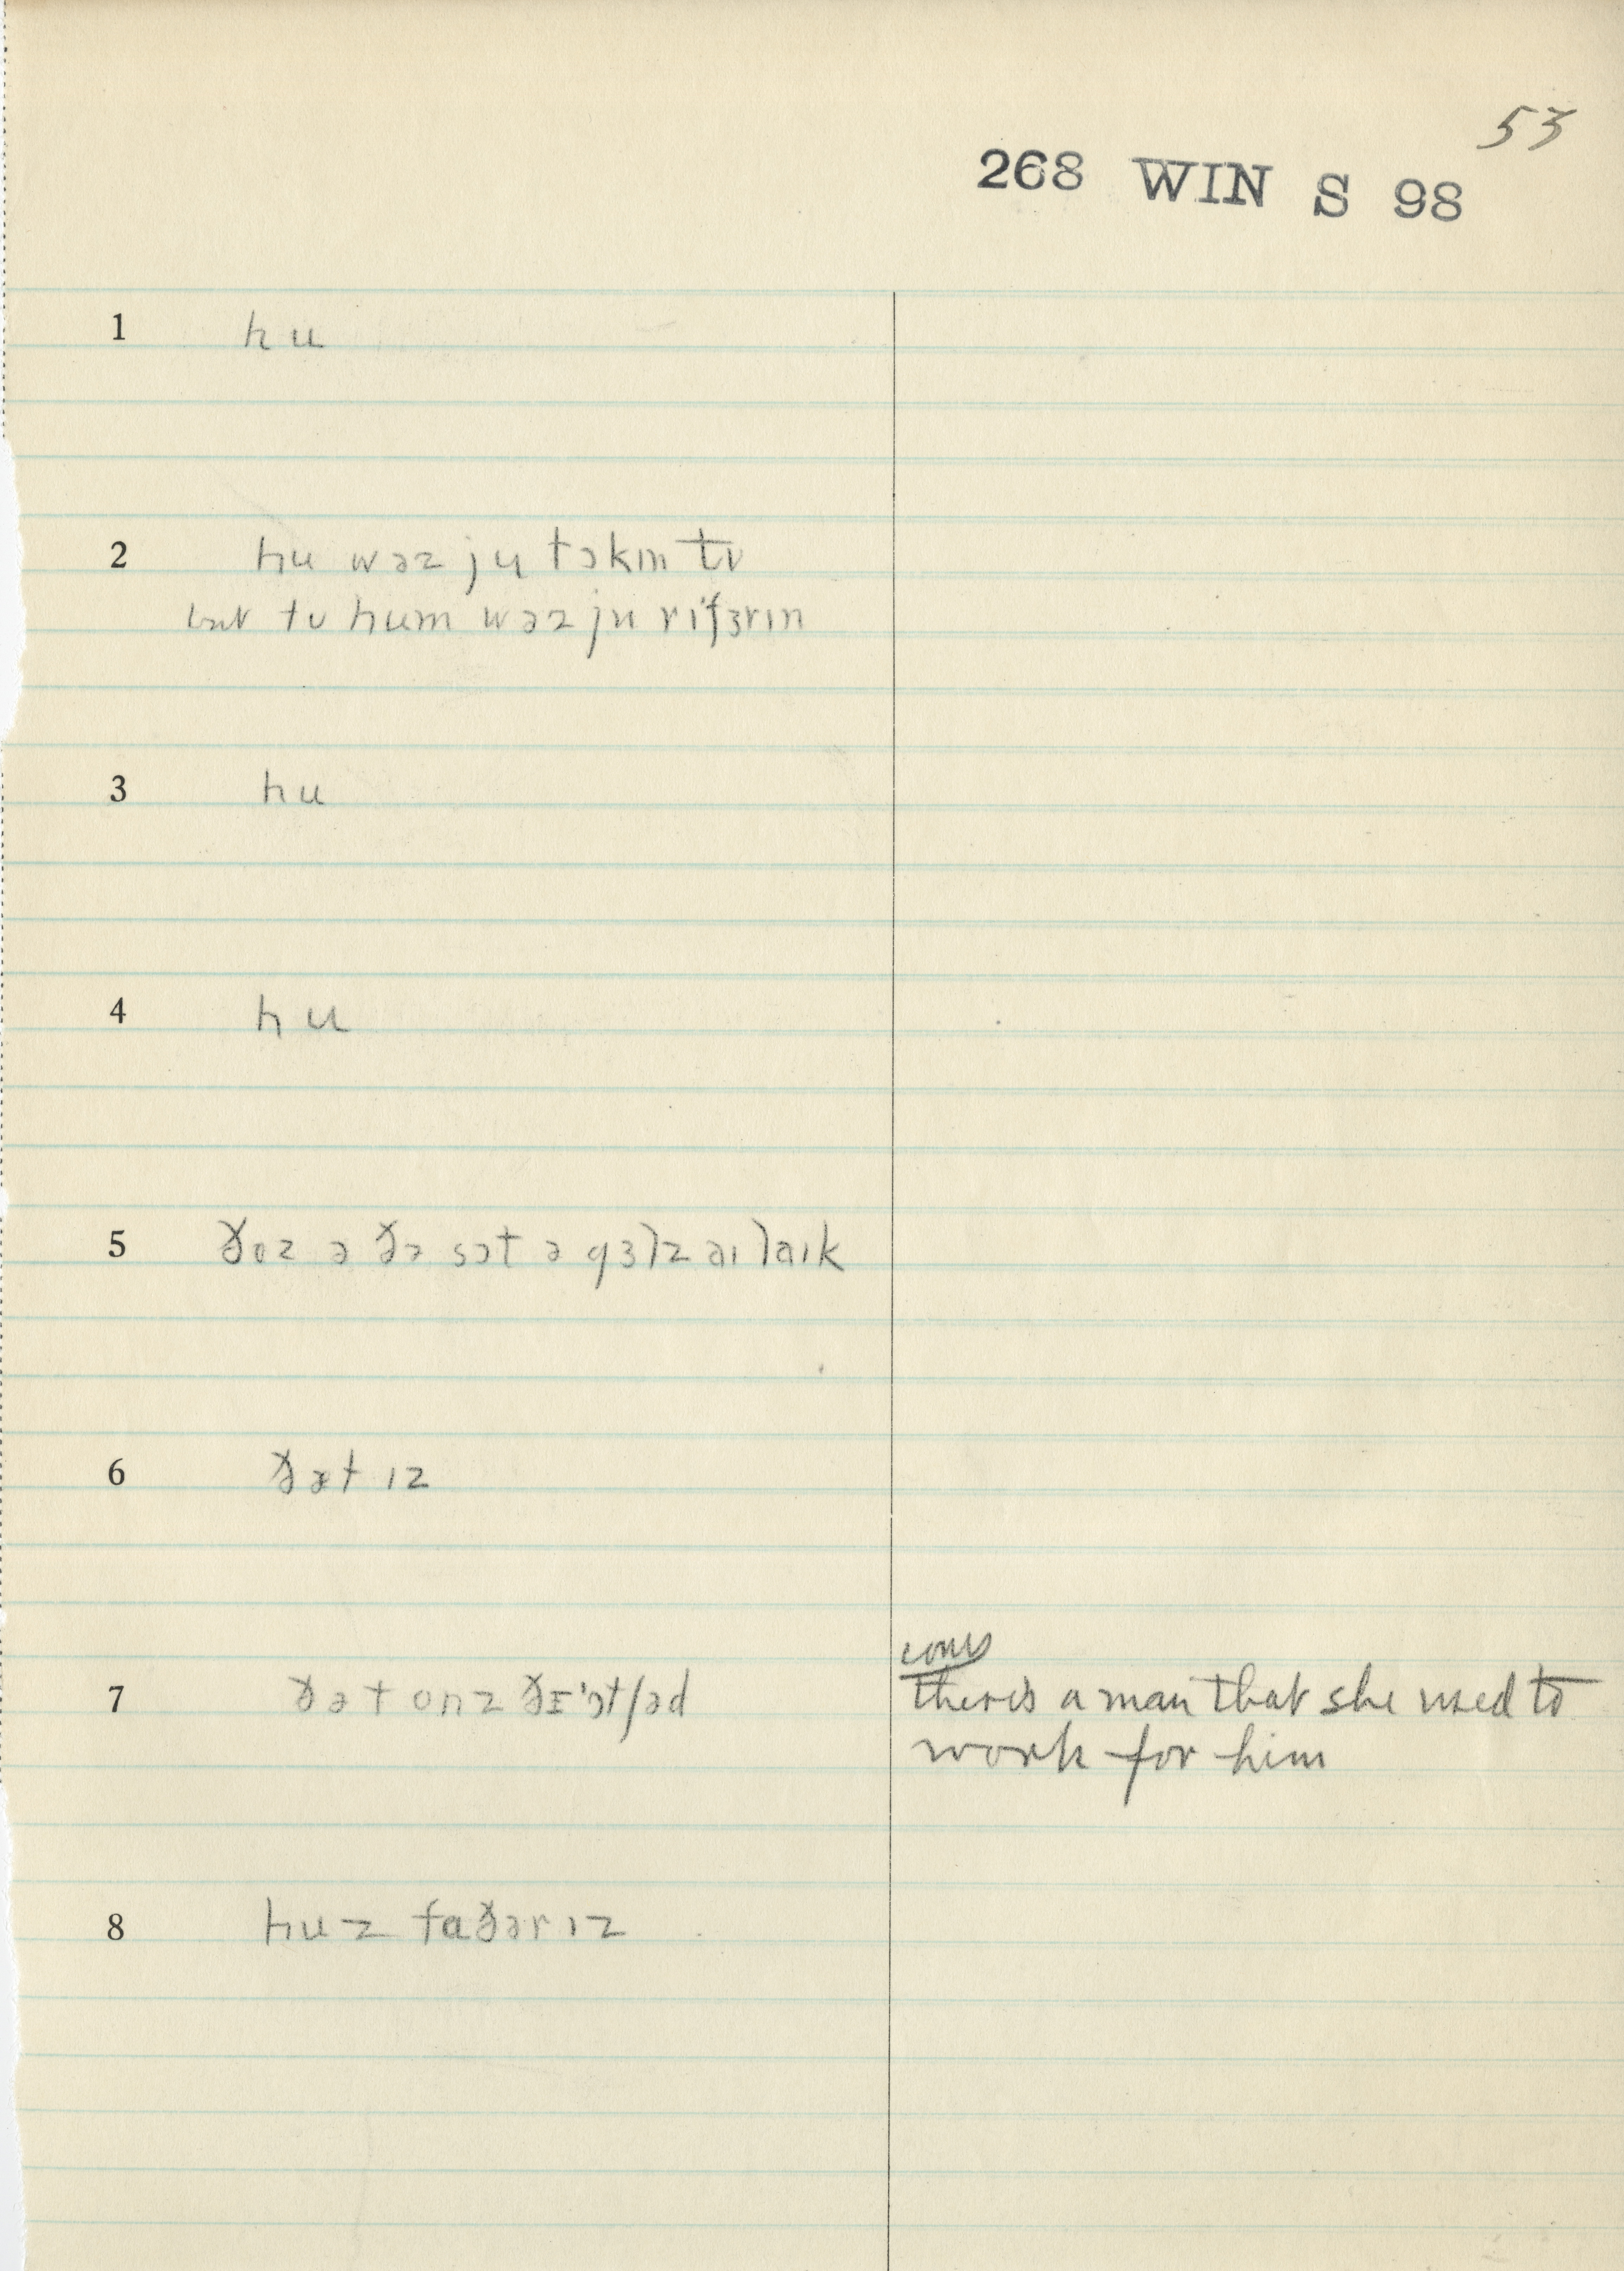 53
268 WIN S 98
1 hu
2 hu wəz ju tɔkɪn tʊ
but tʊ hum wəz ju rɪfɜrɪn
3 hu
4 hu
5 ðoz ə ðə sɔt ə gɜlz aɪ laɪk
6 ðət ɪz
cons
7 ðət onz ðɪ ˈɔtʃəd there is a man that she used to
work for him
8 huz faðər ɪz